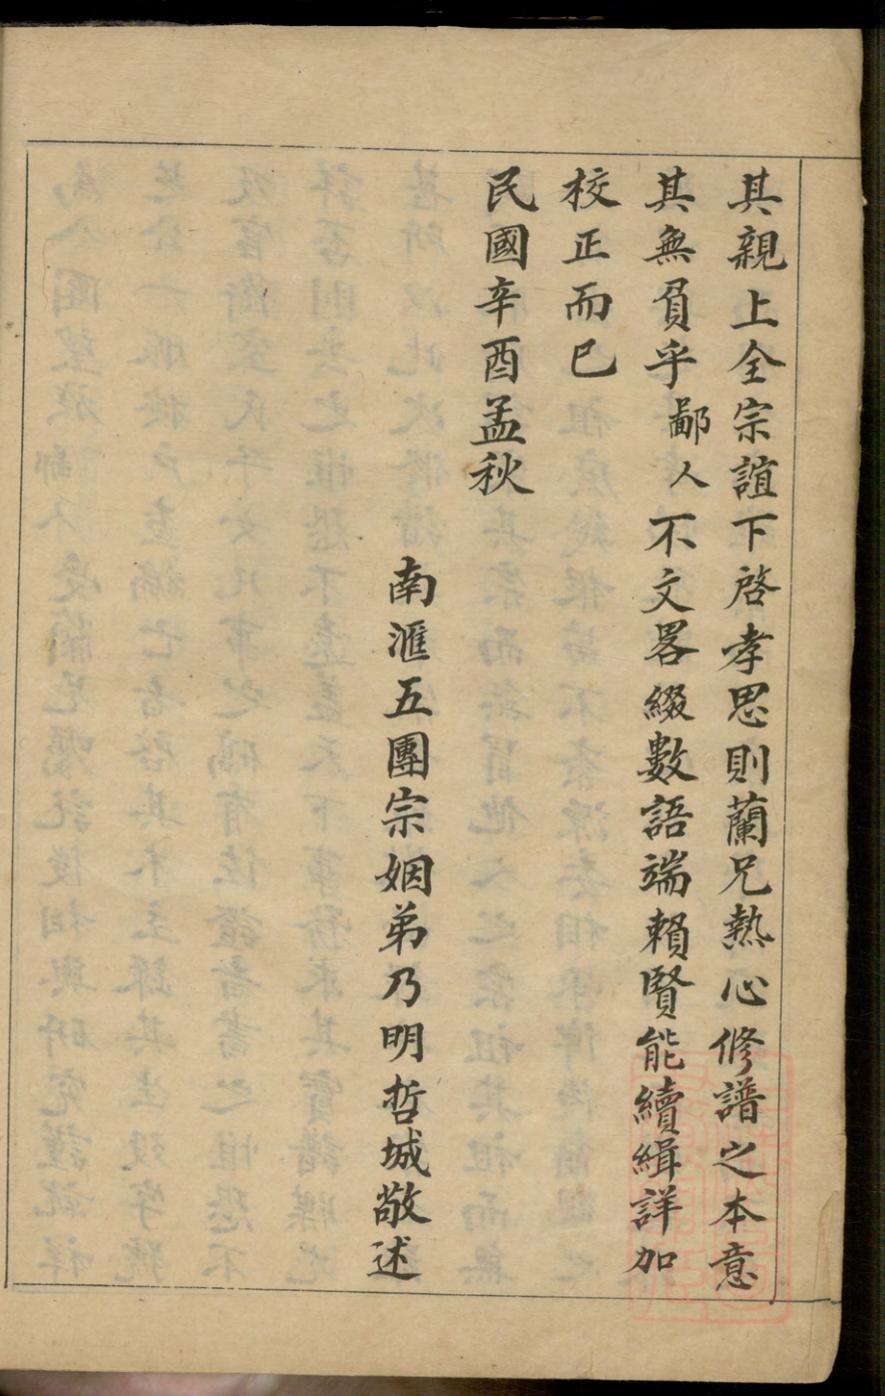 其親上全宗誼下啓孝思則蘭兄熱心修譜之本意
其無負乎鄙人不文畧綴數語端賴賢能續緝詳加
校正而已
民國辛酉孟秋
南滙五團宗姻弟乃明哲城敬述